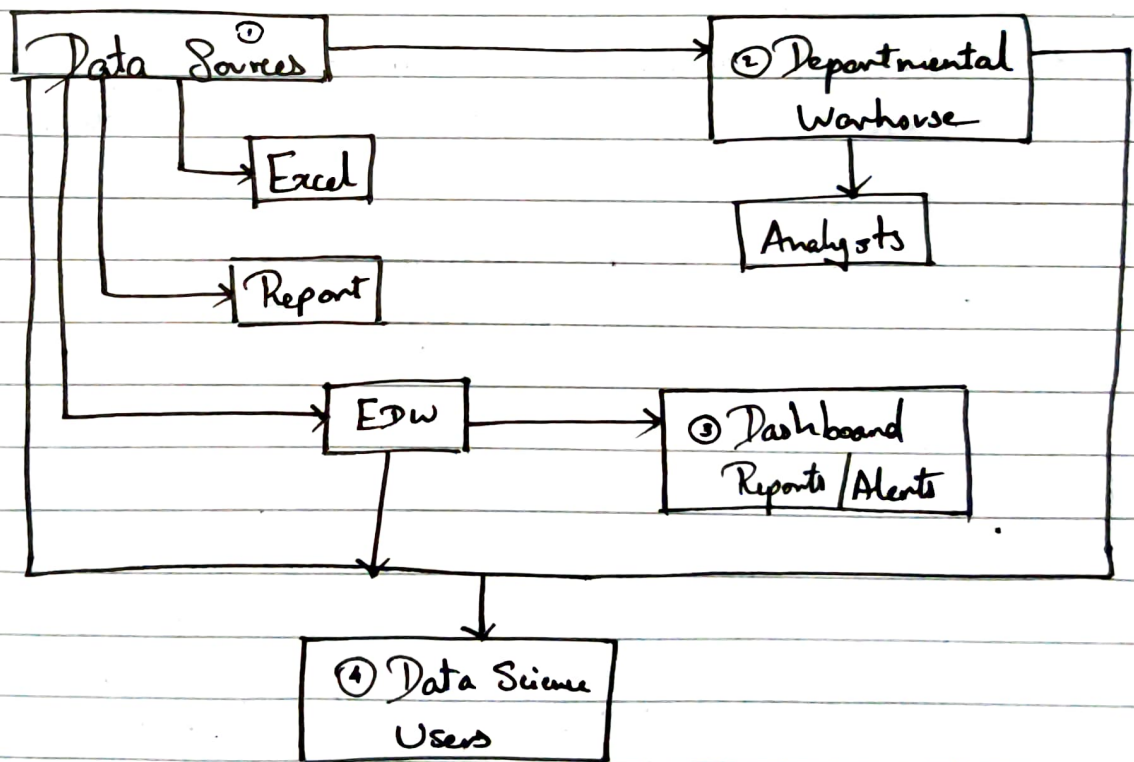 ①
Data Sources
② Departmental
Warhouse
Excel
Analysts
Report
EDW
③ Dashboard
Reports/Alerts
④ Data Science
Users